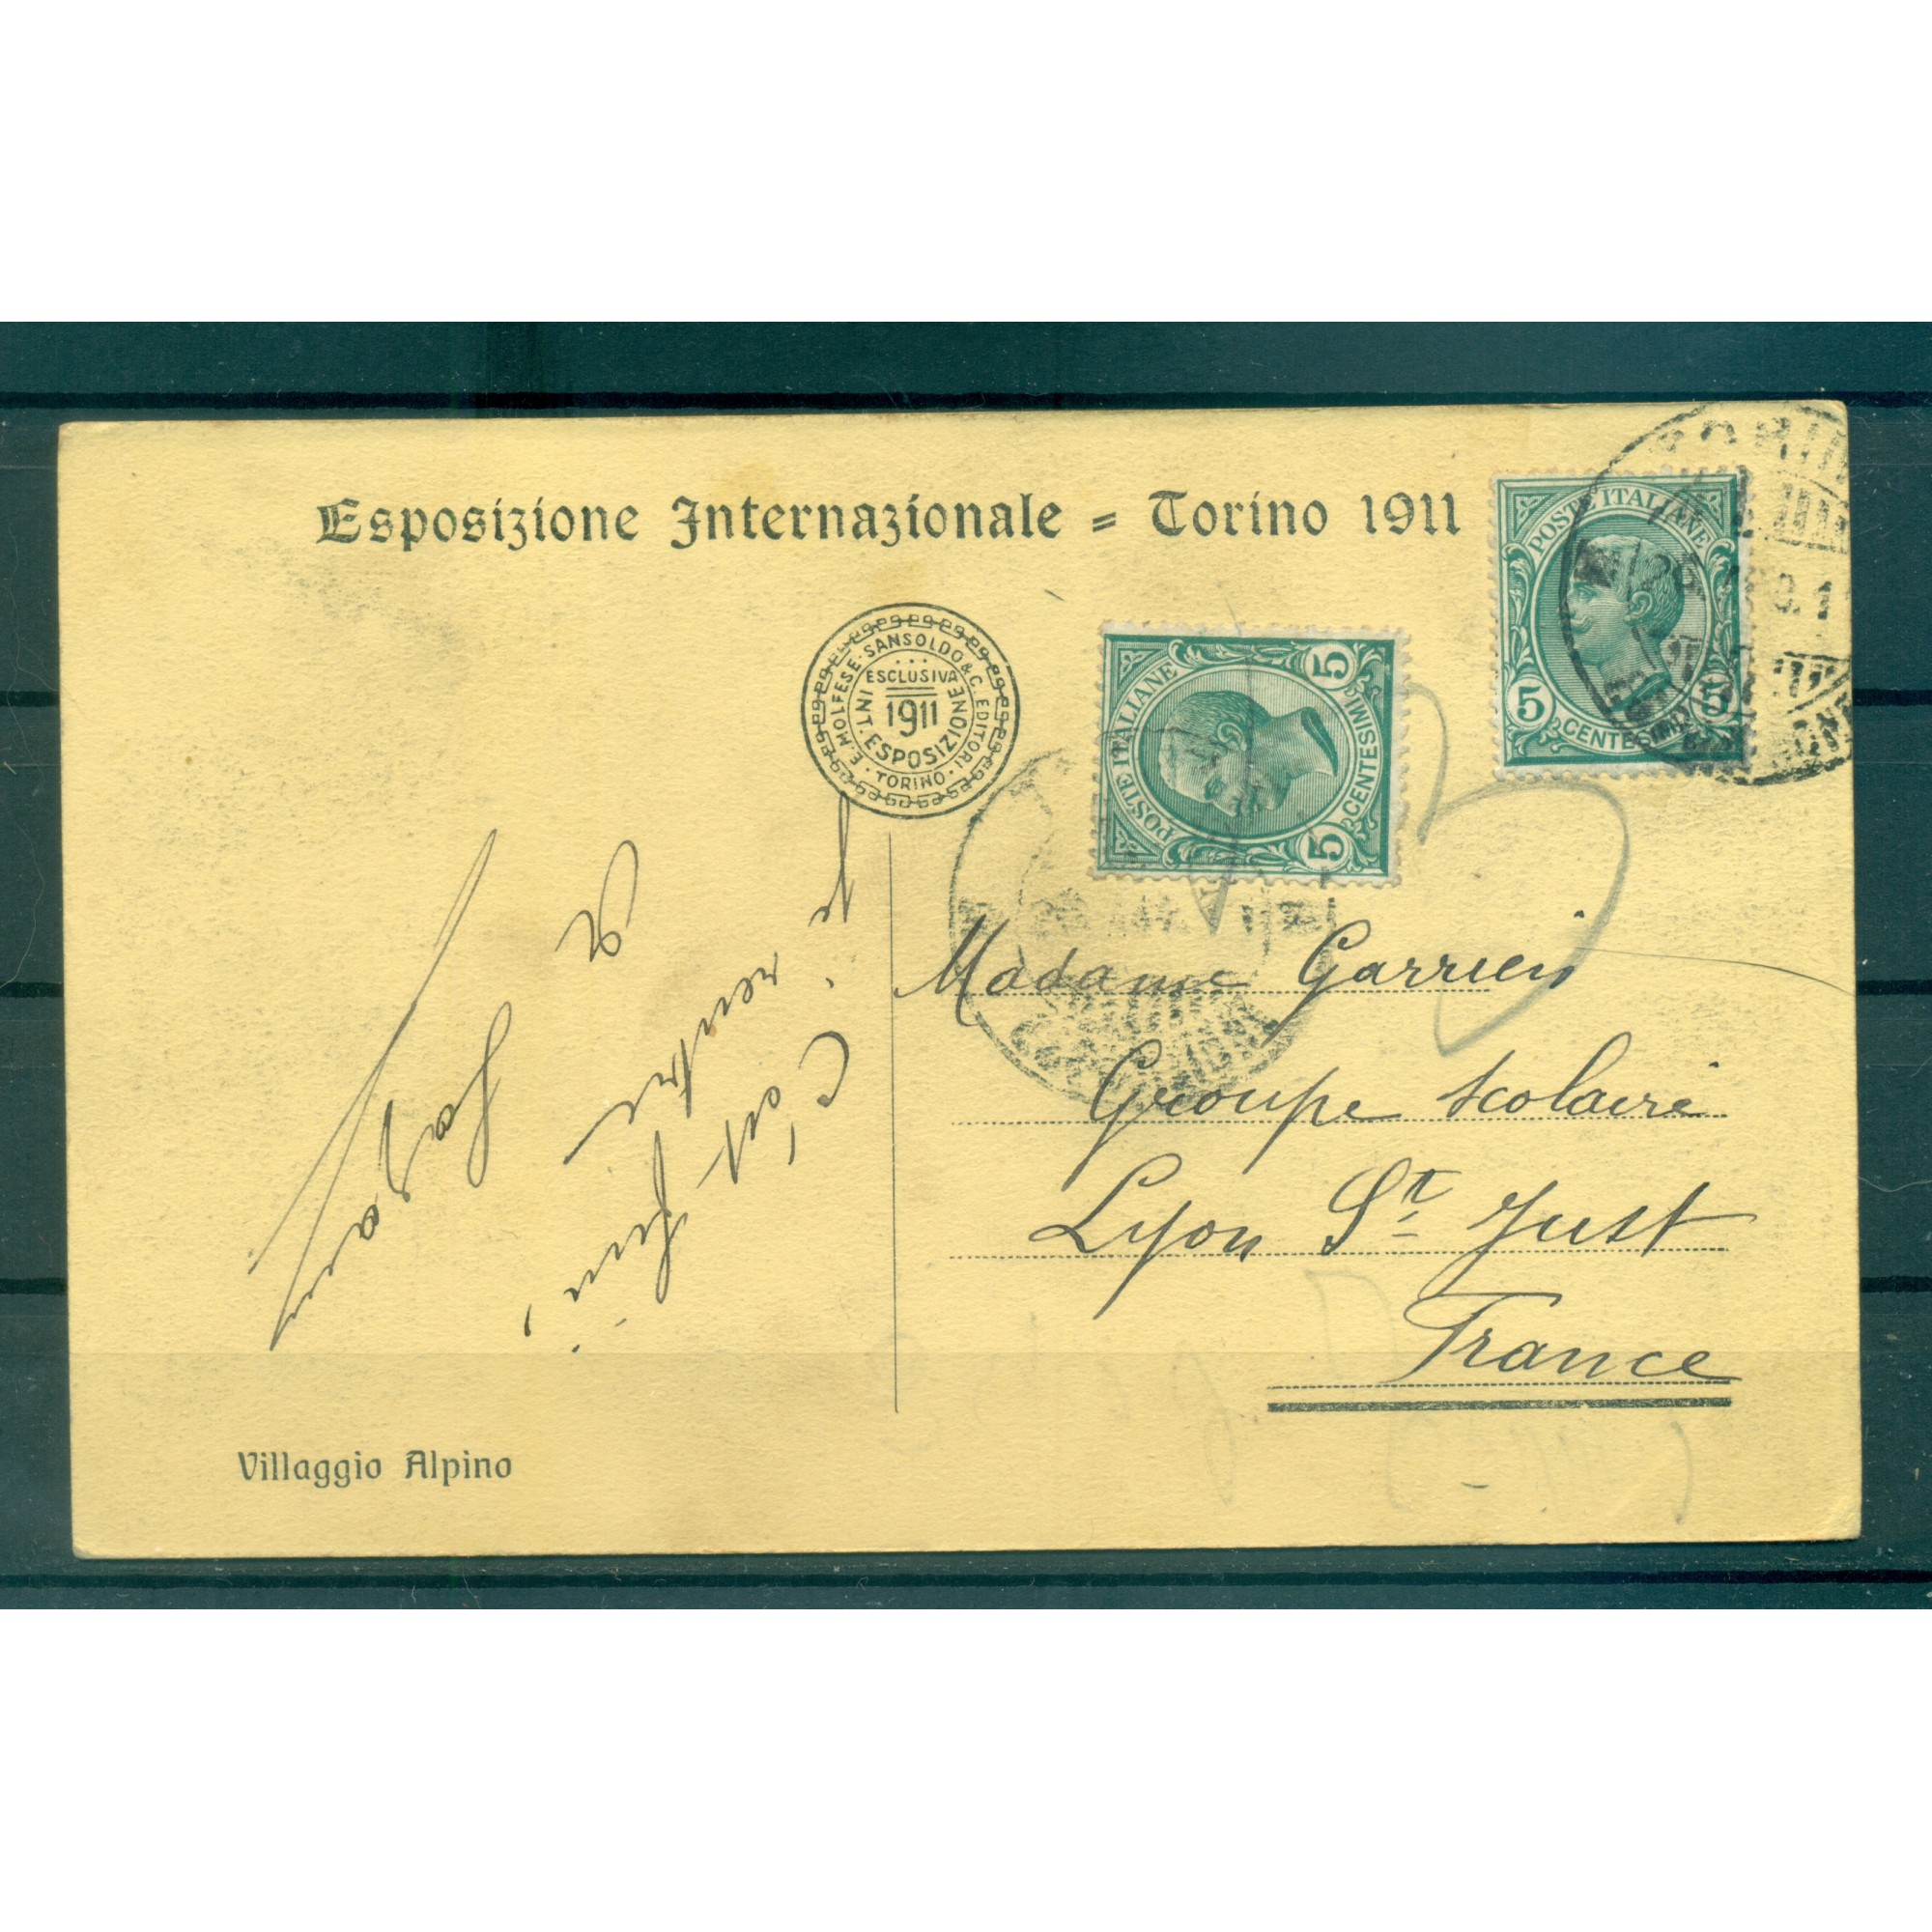 Esposizione Internazionale = Torino 1911
E. MOLFESE · SANSOLDO & C. EDITORI
· TORINO ·
ESCLUSIVA
1911
INT. ESPOSIZIONE
POSTE ITALIANE
5 CENTESIMI 5
POSTE ITALIANE
5 CENTESIMI 5
TORINO
C'est fini,
je rentre
à
Madame
Groupe scolaire
Lyon St Just
France
Villaggio Alpino